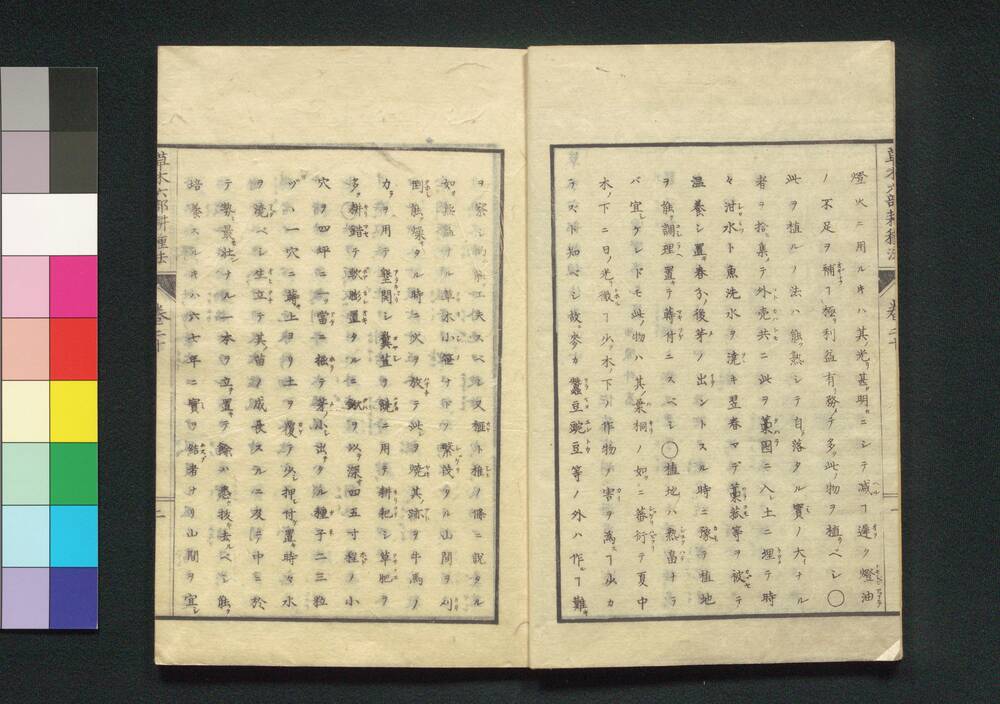 草木六部耕種法 巻二十
燈火ニ用ルキハ其光甚明ニシテ减ヿ遲ク燈油
ノ不足ヲ補フ極利益有務テ多此物ヲ植ベシ〇
此ヲ植ルノ法ハ能熟シテ自落タル實ノ大ナル
者ヲ拾集テ外売共ニ此ヲ藁囤ニ入レ土ニ埋テ時
々泔水ト魚洗水ヲ澆キ翌春マデ藁菰等ヲ被テ
温養シ置春分ノ後芽ノ出ントスル時ニ豫ラ植地
ヲ能調理置テ蒔付ニスベシ〇植地ハ熟畠ナラ
バ宜ケレドモ此物ハ其葉桐ノ如ニ蕃衍テ夏中
木ノ下ニ日ノ光徹ヿ少木ノ下ハ作物ヲ害ヲ為ヿ少カ
ラズト知ベシ故ニ麥カ蠶豆豌豆等ノ外ハ作ルヿ難
ヲ察シ スベシ又櫃ト推ノ條ニ説タル
如ク 草木小笹ハ下ヨリ繁茂タル山間ヲ刈
倒能燥タル時ニ火ヲ放テ此ヲ燒其跡ヲ牛馬ノ
力ヲ用テ墾開シ糞苴ヲ饒ニ用テ耕耙シ草肥ヲ
多耕錯テ軟膨置タルニ鍬ヲ以深四五寸程ノ小
穴ヲ四坪ニ一當ニ掘テ芽ノ小出タル種子二三粒
ヅヽ一穴ニ蒔上ヨリ土ヲ覆テ少押付置時々水
ヲ澆ベシ生立テ其苗ノ成長スルニ及テ中ニ於
テ勢最壮ナル一本ヲ立置テ餘ハ悉抜去ベシ能
培養スルキハ六七年ニ實ヲ結者ナリ山間ヲ宜
草木六部耕種法 巻二十 二